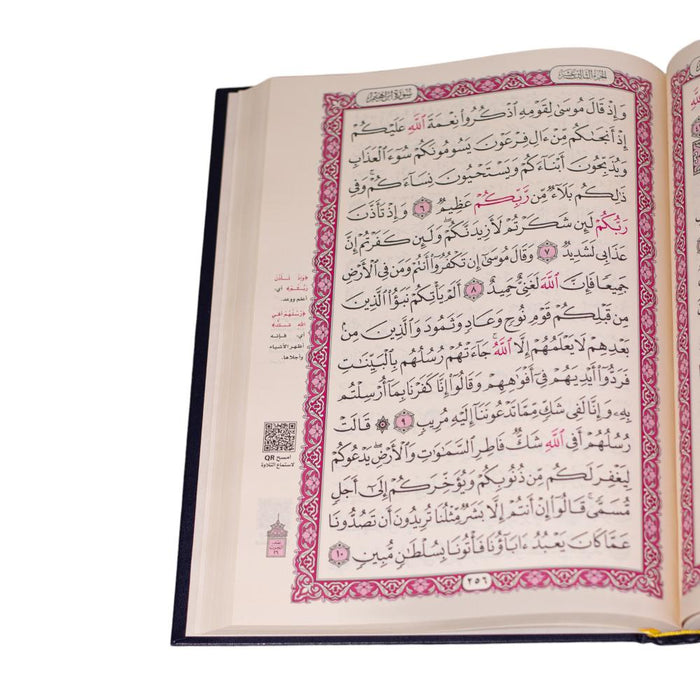 الجزء الثالث عشر
سورة إبراهيم
وَإِذْ قَالَ مُوسَىٰ لِقَوْمِهِ ٱذْكُرُوا۟ نِعْمَةَ ٱللَّهِ عَلَيْكُمْ
إِذْ أَنجَىٰكُم مِّنْ ءَالِ فِرْعَوْنَ يَسُومُونَكُمْ سُوٓءَ ٱلْعَذَابِ
وَيُذَبِّحُونَ أَبْنَآءَكُمْ وَيَسْتَحْيُونَ نِسَآءَكُمْ ۚ وَفِى
ذَٰلِكُم بَلَآءٌ مِّن رَّبِّكُمْ عَظِيمٌ ٦ وَإِذْ تَأَذَّنَ
رَبُّكُمْ لَئِن شَكَرْتُمْ لَأَزِيدَنَّكُمْ ۖ وَلَئِن كَفَرْتُمْ إِنَّ
عَذَابِى لَشَدِيدٌ ٧ وَقَالَ مُوسَىٰٓ إِن تَكْفُرُوٓا۟ أَنتُمْ وَمَن فِى ٱلْأَرْضِ
جَمِيعًا فَإِنَّ ٱللَّهَ لَغَنِىٌّ حَمِيدٌ ٨ أَلَمْ يَأْتِكُمْ نَبَؤُا۟ ٱلَّذِينَ
مِن قَبْلِكُمْ قَوْمِ نُوحٍ وَعَادٍ وَثَمُودَ وَٱلَّذِينَ مِنۢ
بَعْدِهِمْ لَا يَعْلَمُهُمْ إِلَّا ٱللَّهُ ۚ جَآءَتْهُمْ رُسُلُهُم بِٱلْبَيِّنَٰتِ
فَرَدُّوٓا۟ أَيْدِيَهُمْ فِىٓ أَفْوَٰهِهِمْ وَقَالُوٓا۟ إِنَّا كَفَرْنَا بِمَآ أُرْسِلْتُم
بِهِۦ وَإِنَّا لَفِى شَكٍّ مِّمَّا تَدْعُونَنَآ إِلَيْهِ مُرِيبٍ ٩ ۞ قَالَتْ
رُسُلُهُمْ أَفِى ٱللَّهِ شَكٌّ فَاطِرِ ٱلسَّمَٰوَٰتِ وَٱلْأَرْضِ ۖ يَدْعُوكُمْ
لِيَغْفِرَ لَكُم مِّن ذُنُوبِكُمْ وَيُؤَخِّرَكُمْ إِلَىٰٓ أَجَلٍ
مُّسَمًّى ۚ قَالُوٓا۟ إِنْ أَنتُمْ إِلَّا بَشَرٌ مِّثْلُنَا تُرِيدُونَ أَن تَصُدُّونَا
عَمَّا كَانَ يَعْبُدُ ءَابَآؤُنَا فَأْتُونَا بِسُلْطَٰنٍ مُّبِينٍ ١٠
٢٥٦
أعلم ووعد.
أي: فإنه
أظهر الأشياء
وأجلاها.
امسح QR
لاستماع التلاوة